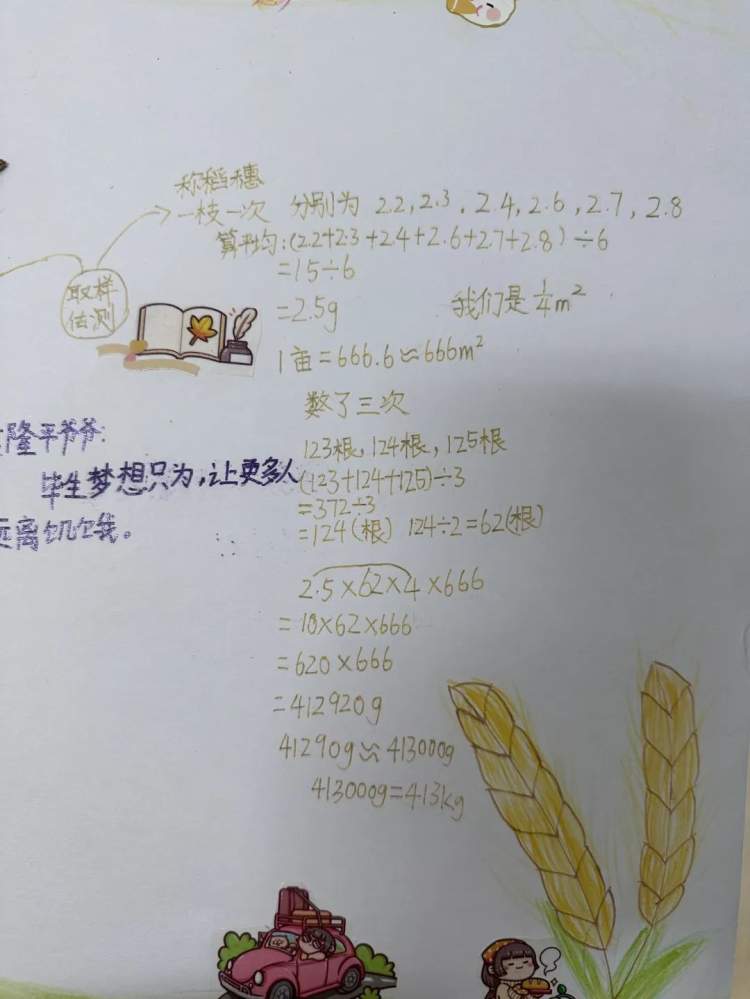 称稻穗
一枝一次 分别为 2.2, 2.3, 2.4, 2.6, 2.7, 2.8
算平均:(2.2+2.3+2.4+2.6+2.7+2.8)÷6
=15÷6
取样
估测
=2.5g 我们是 1/4 m²
1亩=666.6≈666m²
数了三次
隆平爷爷:
123根,124根,125根
毕生梦想只为,让更多人
(123+124+125)÷3
=372÷3
远离饥饿。
=124(根) 124÷2=62(根)
2.5×62×4×666
=10×62×666
=620×666
=412920g
41290g≈413000g
413000g=413kg